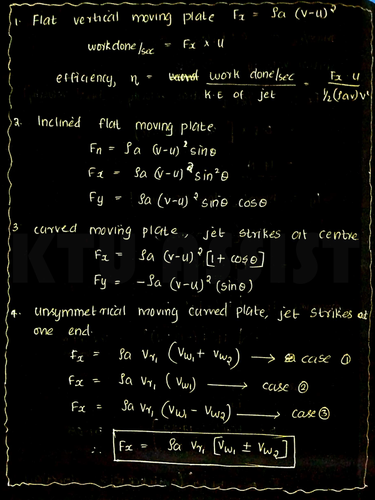 1. Flat vertical moving plate Fx = ρa (V-u)²
workdone/sec = Fx × u
efficiency, η = work done/sec / K.E of jet = Fx u / 1/2 (ρav) v²
2. Inclined flat moving plate
Fn = ρa (v-u)² sinθ
Fx = ρa (v-u)² sin²θ
Fy = ρa (v-u)² sinθ cosθ
3 curved moving plate, jet strikes at centre
Fx = ρa (v-u)² [1+ cosθ]
Fy = -ρa (v-u)² (sinθ)
4. unsymmetrical moving curved plate, jet strikes at
one end.
Fx = ρa Vr1 (Vw1 + Vw2) → case ①
Fx = ρa Vr1 (Vw1) → case ②
Fx = ρa Vr1 (Vw1 - Vw2) → case ③
∴ Fx = ρa Vr1 [Vw1 ± Vw2]